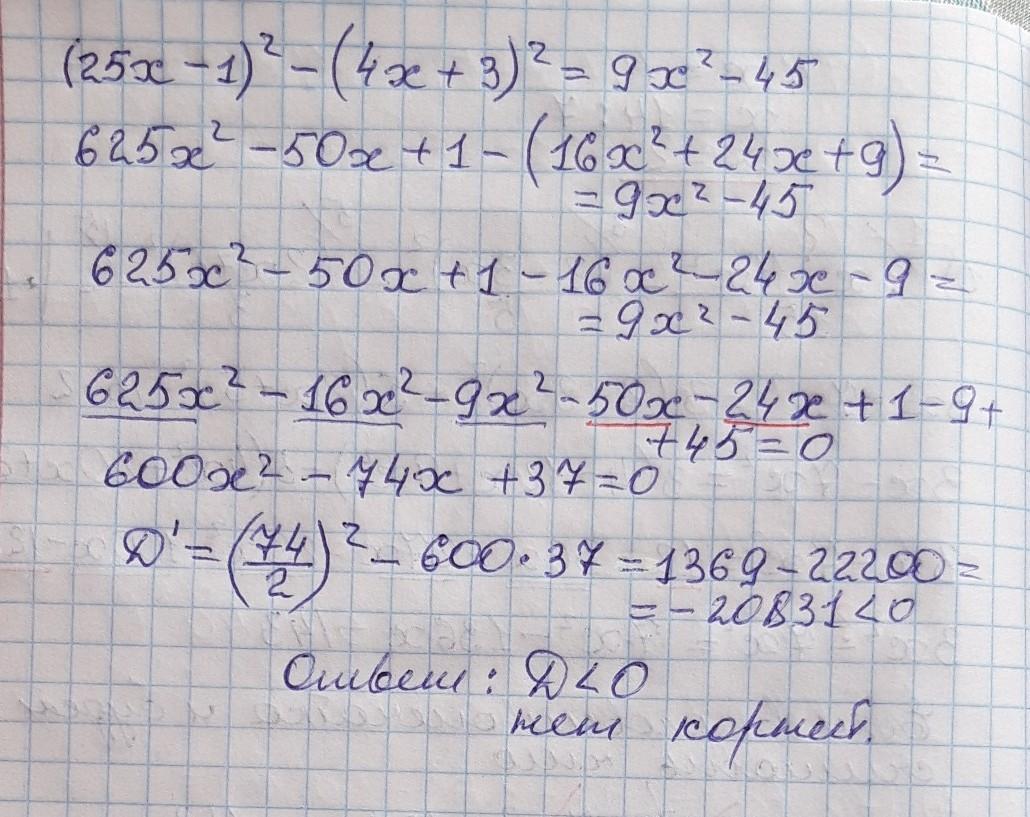 (25x − 1)² − (4x + 3)² = 9x² − 45
625x² − 50x + 1 − (16x² + 24x + 9) =
= 9x² − 45
625x² − 50x + 1 − 16x² − 24x − 9 =
= 9x² − 45
625x² − 16x² − 9x² − 50x − 24x + 1 − 9 +
+ 45 = 0
600x² − 74x + 37 = 0
D' = (74/2)² − 600 · 37 = 1369 − 22200 =
= − 20831 < 0
Ответ: D < 0
нет корней.